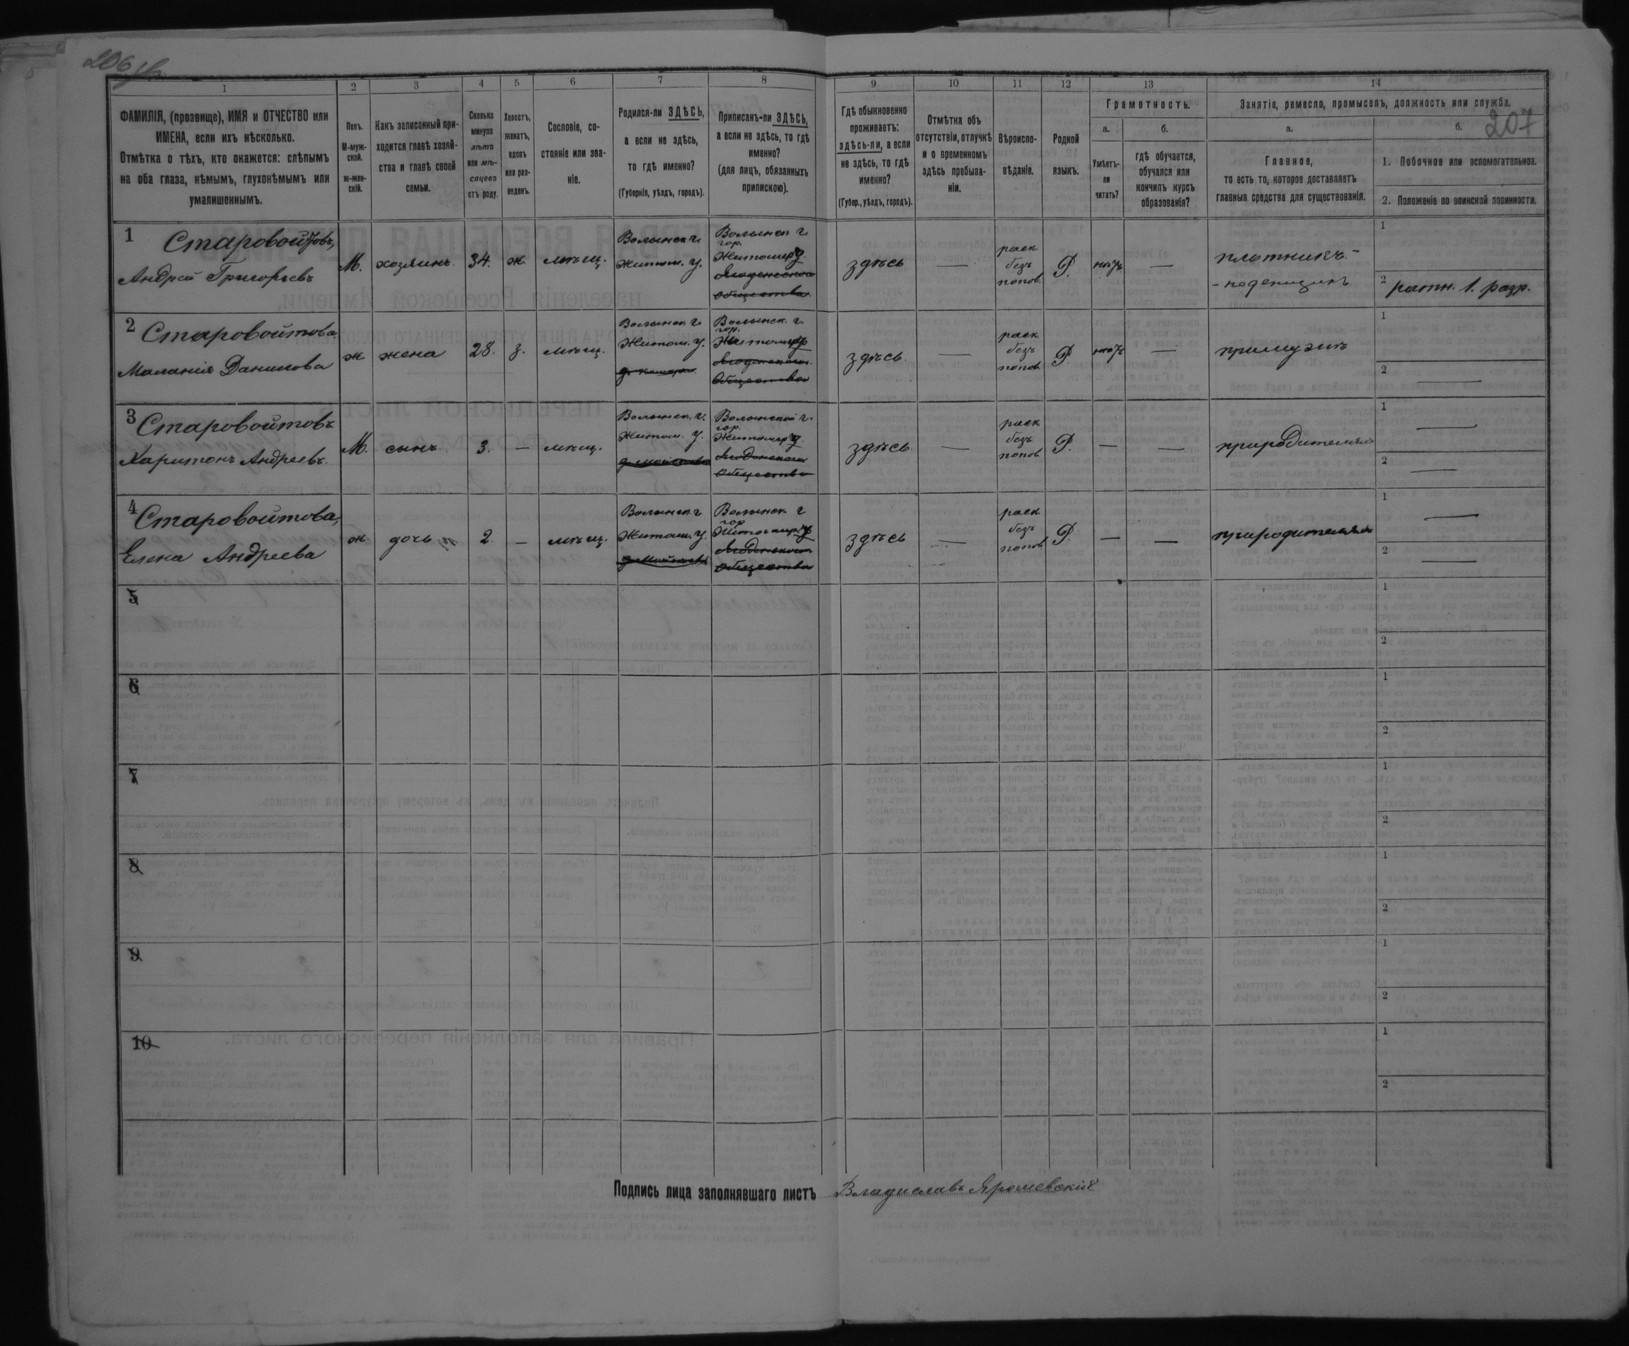 206 об
207
1 2 3 4 5 6 7 8 9 10 11 12 13 14
ФАМИЛІЯ, (прозвище), ИМЯ и ОТЧЕСТВО или
ИМЕНА, если ихъ нѣсколько.
Отмѣтка о тѣхъ, кто окажется: слѣпымъ
на оба глаза, нѣмымъ, глухонѣмымъ или
умалишеннымъ.
Полъ.
М-муж-
ской.
ж-жен-
скій.
Какъ записанный при-
ходится главѣ хозяй-
ства и главѣ своей
семьи.
Сколько
минуло
лѣтъ
или мѣ-
сяцевъ
отъ роду.
Холостъ,
женатъ,
вдовъ
или раз-
веденъ.
Сословіе, со-
стояніе или зва-
ніе.
Родился-ли ЗДѢСЬ,
а если не здѣсь,
то гдѣ именно?
(Губернія, уѣздъ, городъ).
Приписанъ-ли ЗДѢСЬ,
а если не здѣсь, то гдѣ
именно?
(для лицъ, обязанныхъ
припискою).
Гдѣ обыкновенно
проживаетъ:
здѣсь-ли, а если
не здѣсь, то гдѣ
именно?
(Губер., уѣздъ, городъ).
Отмѣтка объ
отсутствіи, отлучкѣ
и о временномъ
здѣсь пребыва-
ніи.
Вѣроиспо-
вѣданіе.
Родной
языкъ.
Грамотность.
а. б.
Умѣетъ-
ли
читать?
гдѣ обучается,
обучался или
кончилъ курсъ
образованія?
Занятіе, ремесло, промыселъ, должность или служба.
а. б.
Главное,
то есть то, которое доставляетъ
главныя средства для существованія.
1. Побочное или вспомогательное.
2. Положеніе по воинской повинности.
1 Старовойтовъ,
Андрей Григорьевъ
М. хозяинъ 34. ж. мѣщ.
Волынск. г.
Житом. у.
Волынск г
гор.
Житомиръ
здѣсь —
раск
безъ
попов
Р. нѣтъ —
плотникъ -
- поденщикъ
1
2 ратн. 1. разр.
2 Старовойтова
Маланія Данилова
ж жена 28. з. мѣщ.
Волынск. г.
Житом. у.
Волынск. г.
гор.
Житомиръ
здѣсь —
раск
безъ
попов
Р. нѣтъ —
при мужѣ
1
2 —
3 Старовойтовъ
Харитонъ Андреевъ.
М. сынъ 3. — мѣщ.
Волынск. г.
Житом. у.
Волынской г.
гор.
Житомиръ
здѣсь —
раск
безъ
попов
Р. — —
при родителяхъ
1 —
2 —
4 Старовойтова,
Елена Андреева
ж дочь 2. — мѣщ.
Волынск г
Житом. у.
Волынск г
гор
Житомиръ
здѣсь —
раск
безъ
попов
Р. — —
при родителяхъ
1 —
2 —
5 1
2
6 1
2
7 1
2
8 1
2
9 1
2
10 1
2
Подпись лица заполнявшаго листъ Владиславъ Ярошевскій